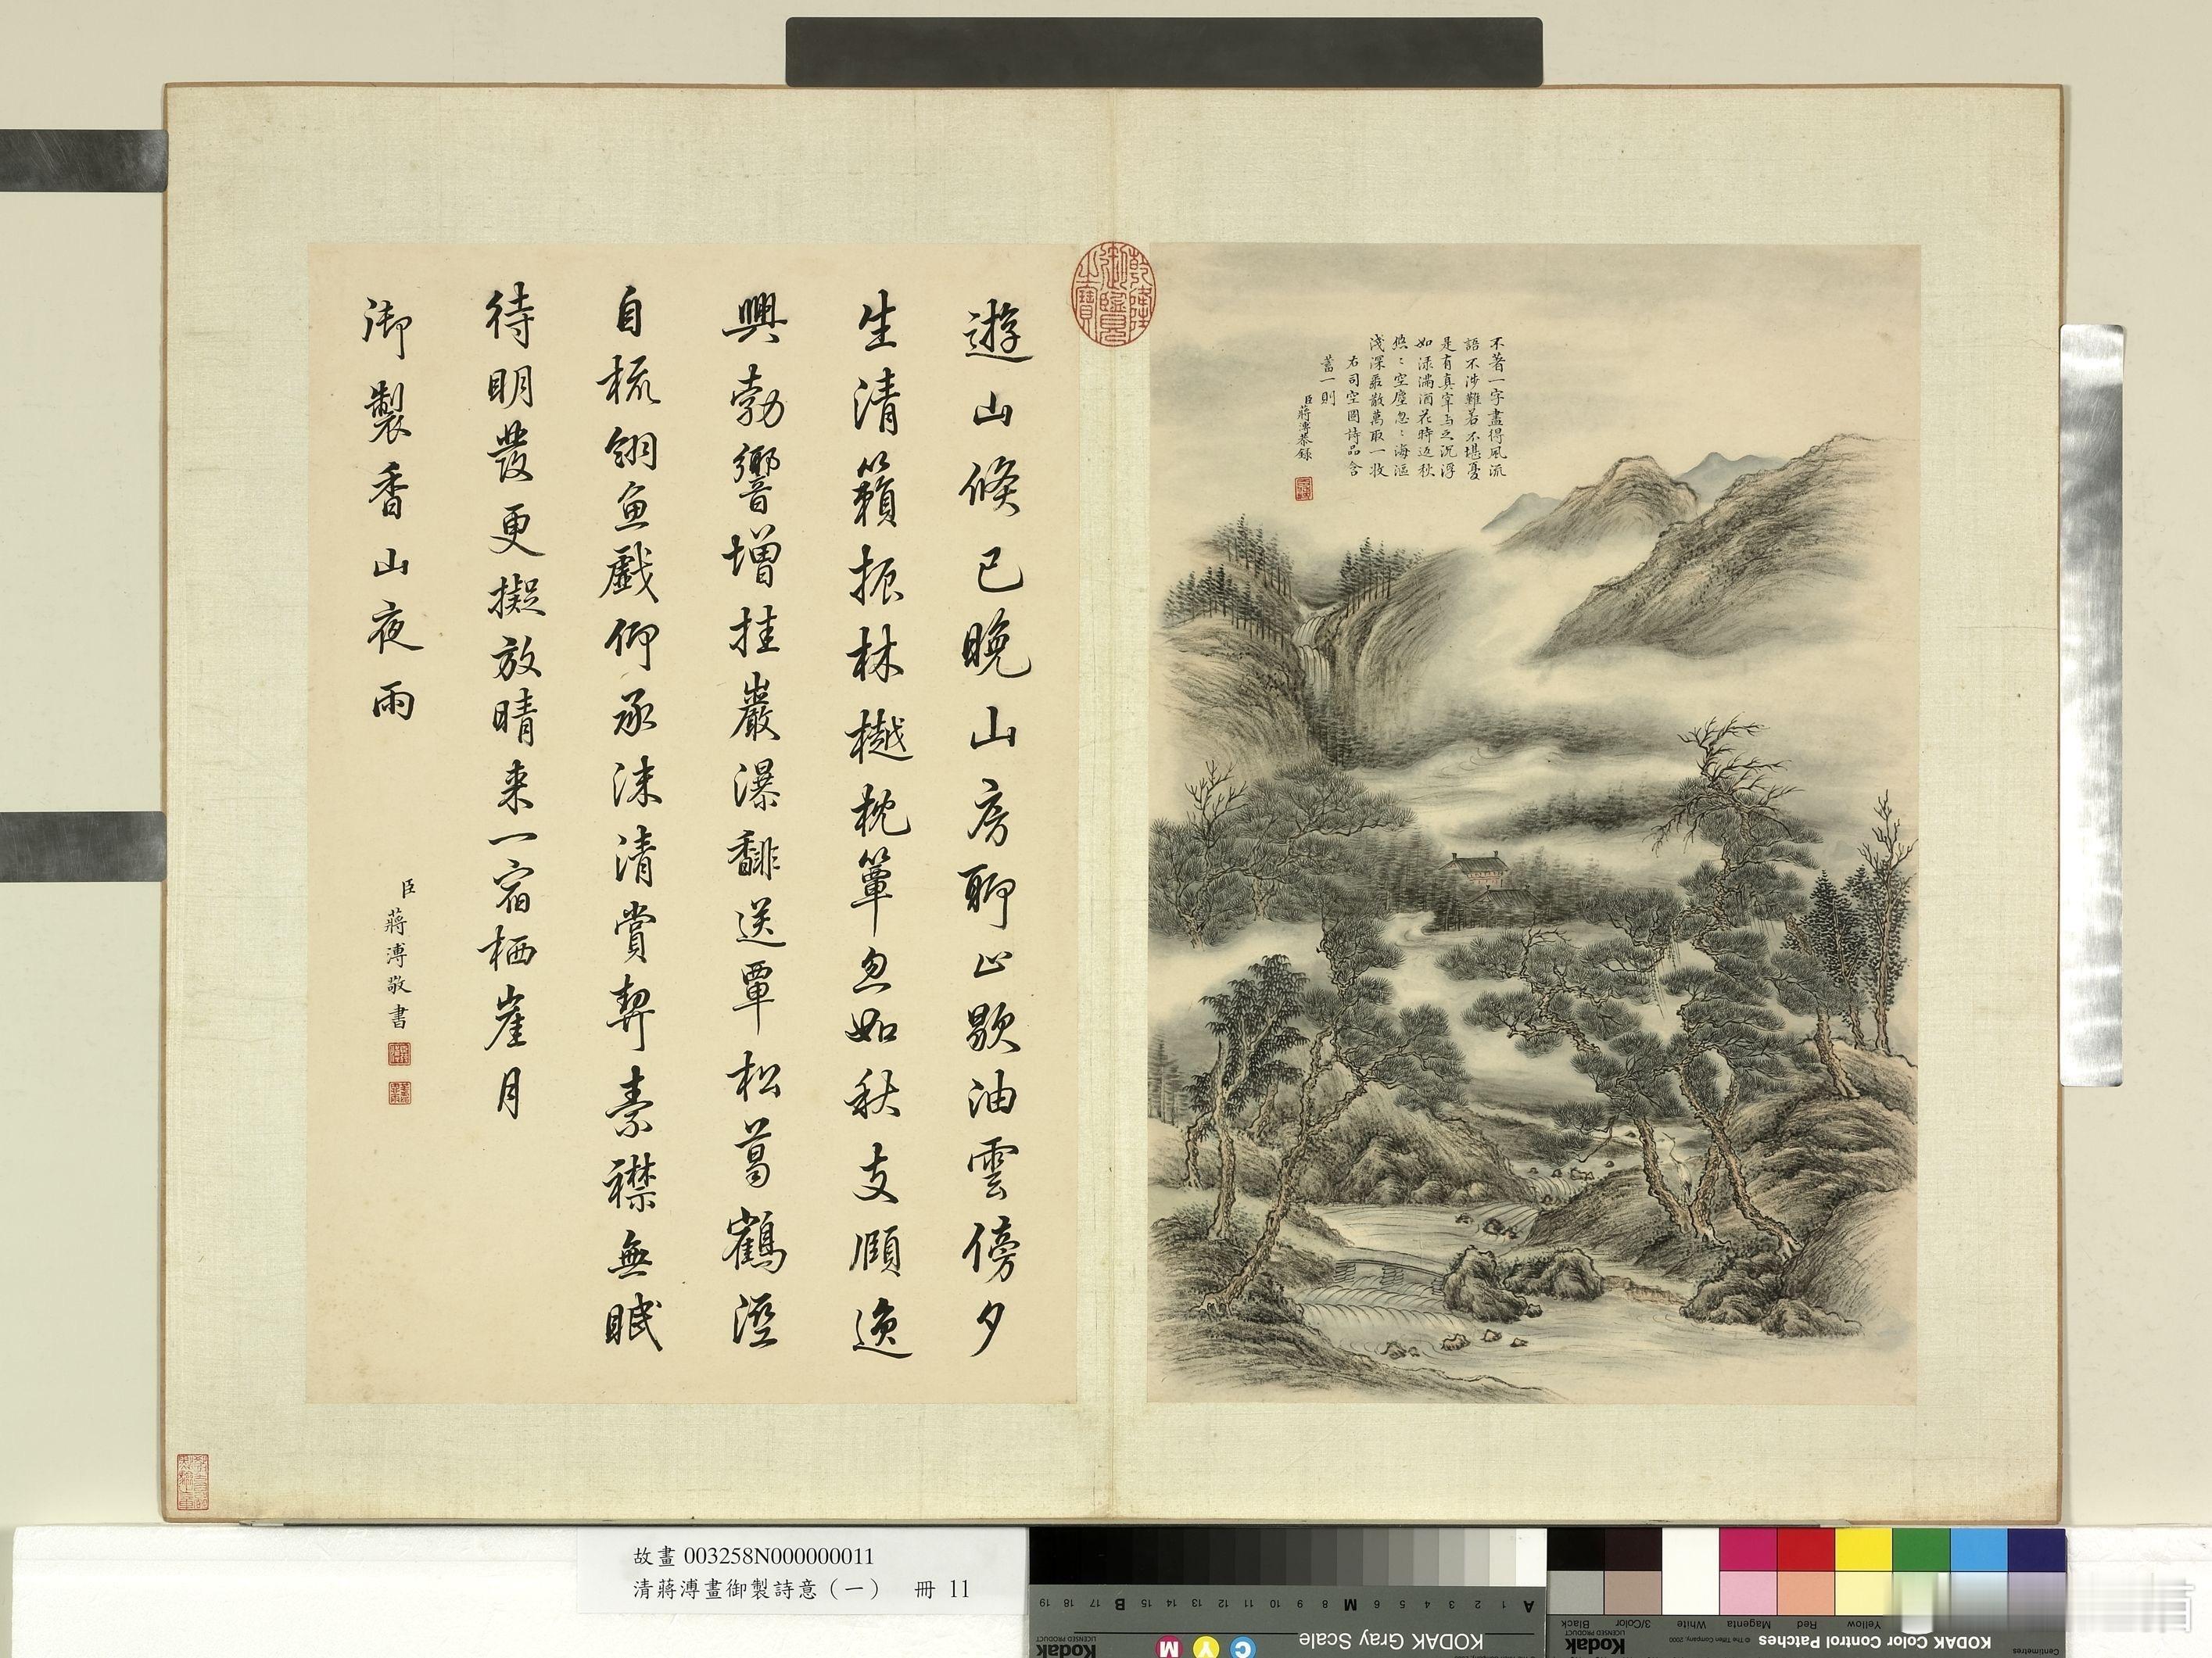 不著一字盡得風流
語不涉難若不堪憂
是有真宰与之沉浮
如淥滿酒花時返秋
悠：空塵忽：海漚
淺深聚散萬取一收
右司空圖詩品含
蓄一則
臣蔣溥恭錄
乾隆御覽之寶
遊山倐已晚山房聊止歇油雲傍夕
生清籟振林樾枕簟忽如秋支頤逸
興勃響增挂巖瀑馡送覃松葛鶴溼
自梳翎魚戲仰承沫清賞契素襟無眠
待明發更擬放晴来一宿栖崖月
御製香山夜雨
臣蔣溥敬書
故畫 003258N000000011
清蔣溥畫御製詩意（一） 冊 11
KODAK Gray Scale
Kodak
LICENSED PRODUCT
C Y M
A 1 2 3 4 5 6 M 8 9 10 11 12 13 14 15 B 17 18 19
KODAK Color Control Patches
© The Tiffen Company, 2000
Kodak
LICENSED PRODUCT
Centimetres
Yellow
Red
Magenta
White
3/Color
Black